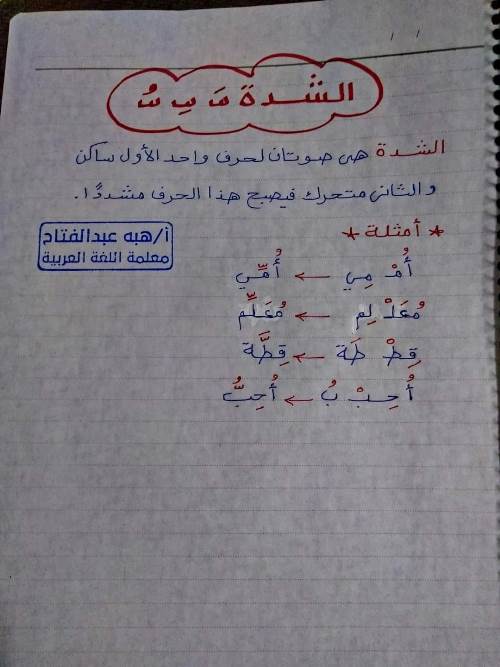 الشدة ـَّ ـِّ ـُّ
الشدة هى صوتان لحرف واحد الأول ساكن
والثانى متحرك فيصبح هذا الحرف مشددًا.
* أمثلة *
أ/هبه عبدالفتاح
معلمة اللغة العربية
أُمْ مِي ← أُمِّي
مُعَلْ لِم ← مُعَلِّم
قِطْ طَة ← قِطَّة
أُحِبْ بُ ← أُحِبُّ